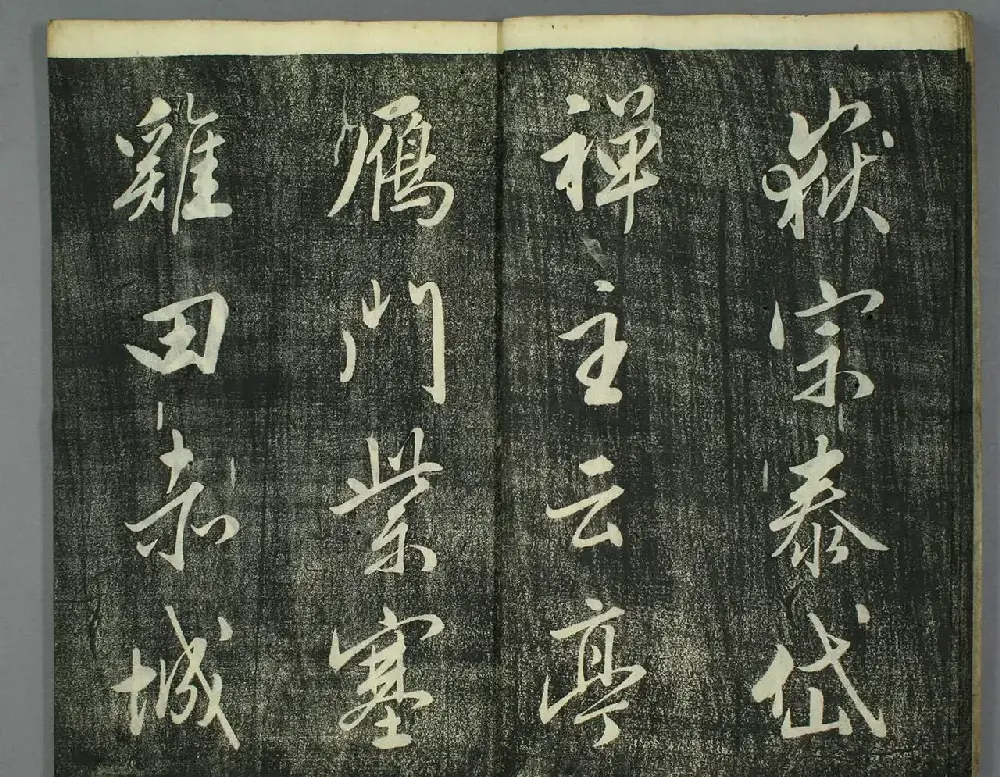 嶽宗泰岱
禅主云亭
鴈門紫塞
雞田赤城